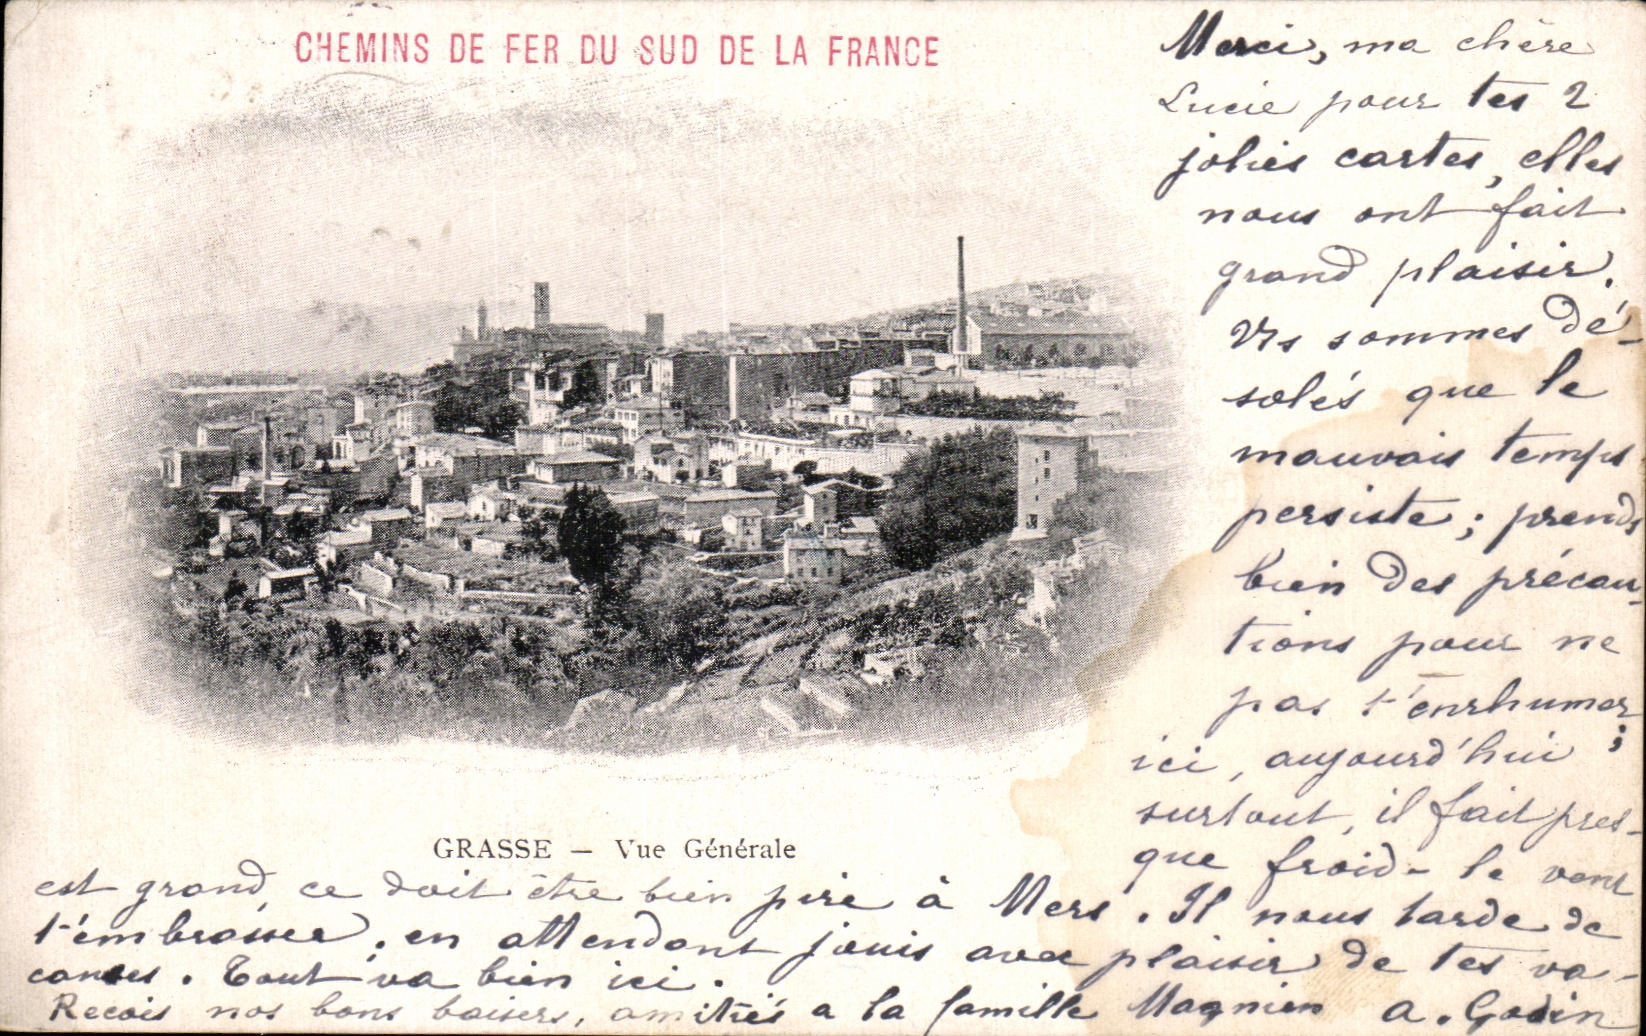 CHEMINS DE FER DU SUD DE LA FRANCE
Merci, ma chère
Lucie pour tes 2
jolies cartes, elles
nous ont fait
grand plaisir.
Ns sommes dé-
solés que le
mauvais temps
persiste ; prends
bien des précau-
tions pour ne
pas t'enrhumer ;
ici, aujourd'hui
surtout, il fait pres-
que froid - le vent
GRASSE — Vue Générale
est grand, ce doit être bien pire à Mers. Il nous tarde de
t'embrasser, en attendant jouis avec plaisir de tes va-
cances. Tout va bien ici.
Reçois nos bons baisers, amitiés a la famille Magnien A. Godin